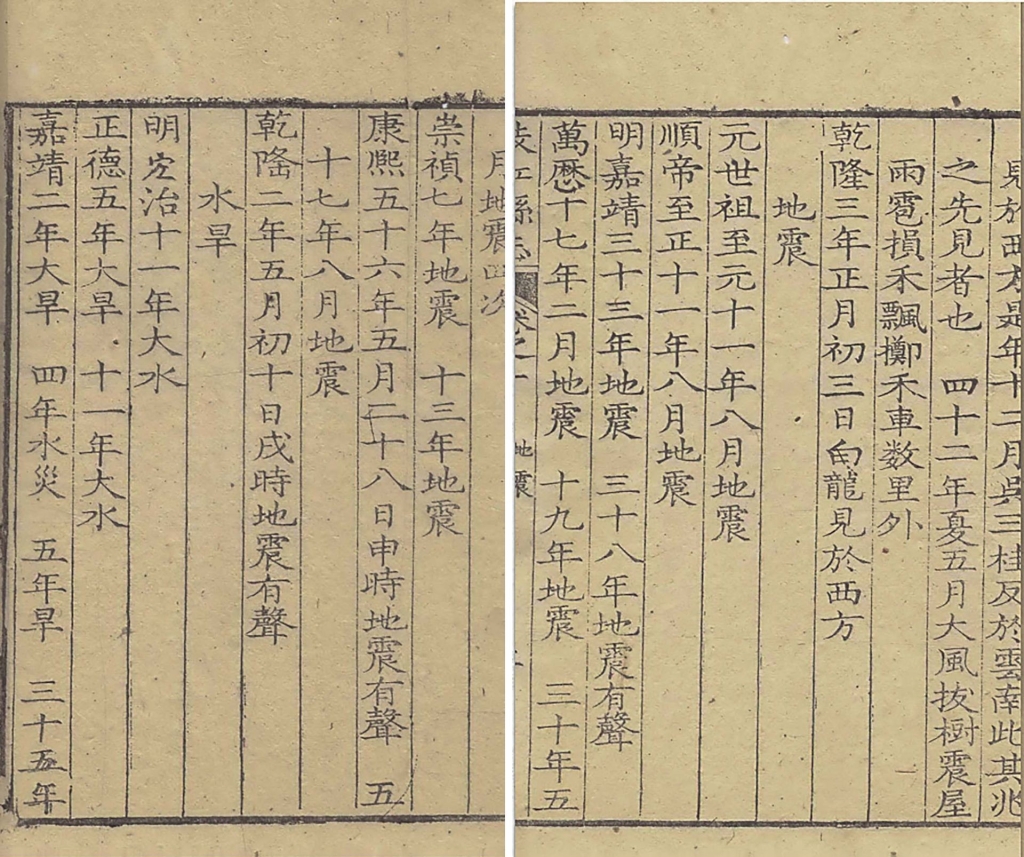 見於西方是年十二月吳三桂反於雲南此其兆
之先見者也 四十二年夏五月大風拔樹震屋
雨雹損禾飄擲禾車数里外
乾隆三年正月初三日白龍見於西方
地震
元世祖至元十一年八月地震
順帝至正十一年八月地震
明嘉靖三十三年地震 三十八年地震有聲
萬歷十七年二月地震 十九年地震 三十年五
江縣志 卷之一 地震
月地震四次
崇禎七年地震 十三年地震
康熙五十六年五月二十八日申時地震有聲 五
十七年八月地震
乾隆二年五月初十日戌時地震有聲
水旱
明宏治十一年大水
正德五年大旱 十一年大水
嘉靖二年大旱 四年水災 五年旱 三十五年